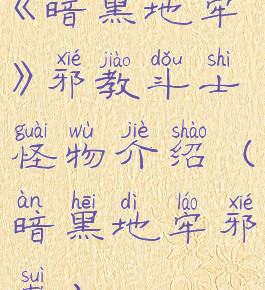 《暗黑地牢
xié jiào dǒu shì
》邪教斗士
guài wù jiè shào
怪物介绍（
àn hēi dì láo xié
暗黑地牢邪
suì